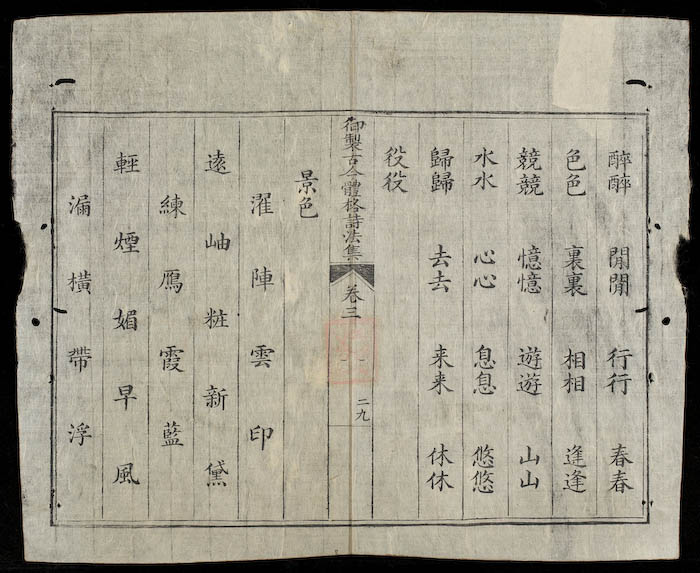 醉醉 閒閒 行行 春春
色色 裏裏 相相 逢逢
競競 憶憶 遊遊 山山
水水 心心 息息 悠悠
歸歸 去去 来来 休休
役役
御製古今體格詩法集 卷三 二九
景色
濯陣雲印
遠岫粧新黛
練鴈霞藍
輕煙媚早風
漏橫帶浮